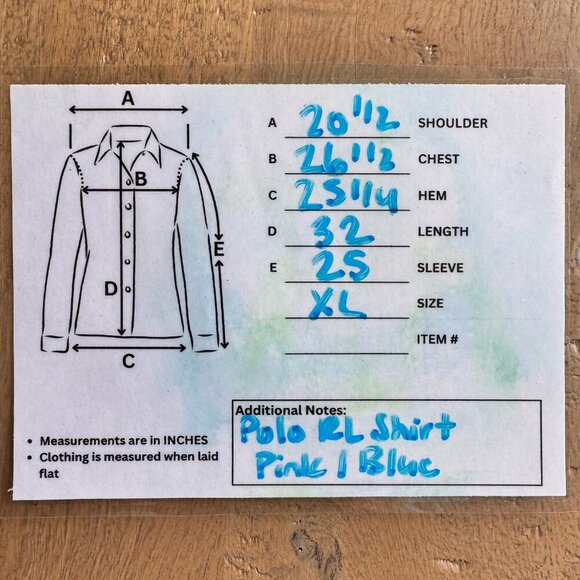 A
B
E
D
C
A 20 1/2 SHOULDER
B 26 1/2 CHEST
C 25 1/4 HEM
D 32 LENGTH
E 25 SLEEVE
XL SIZE
ITEM #
• Measurements are in INCHES
• Clothing is measured when laid
flat
Additional Notes:
Polo RL Shirt
Pink / Blue